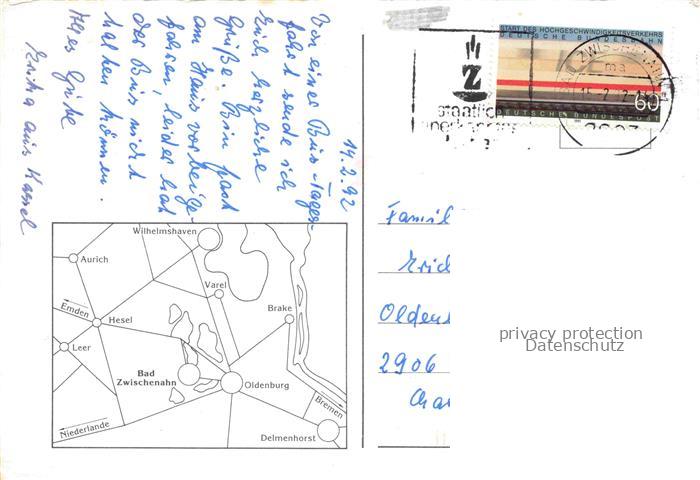 14.2.92
Von einer Bus-Tages-
fahrt sende ich
Euch herzliche
Grüße. Bin fast
am Haus vorbeige-
fahren, leider hat
der Bus nicht
halten können.
Alles Gute
Erika aus Kassel
START DES HOCHGESCHWINDIGKEITSVERKEHRS
DEUTSCHE BUNDESBAHN
60
DEUTSCHE BUNDESPOST
Z
staatlich
Famil
Olden
2906
privacy protection
Datenschutz
Wilhelmshaven
Aurich
Varel
Brake
Emden
Hesel
Leer
Bad
Zwischenahn
Oldenburg
Bremen
Niederlande
Delmenhorst